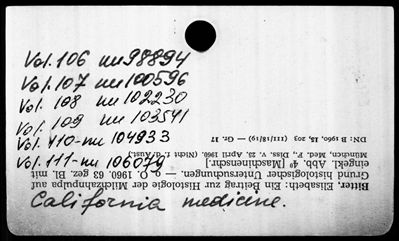 Vol. 106 nu 98894
Vol. 107 nu 100596
Vol. 108 nu 102230
Vol. 109 nu 103541
Vol. 110-nu 104933
Vol. 111-nu 106079
California medicine.
Bitter, Elisabeth: Ein Beitrag zur Histologie der Milchzahnpulpa auf
Grund histologischer Untersuchungen. — O. O. 1960. 63 gez. Bl. mit
eingekl. Abb. 4° [Maschinenschr.]
München, Med. F., Diss. v. 25. April 1960. (Nicht f. d. Aust.)
DN: B 1960, 15, 203 (111/18/19) — Gr. 17